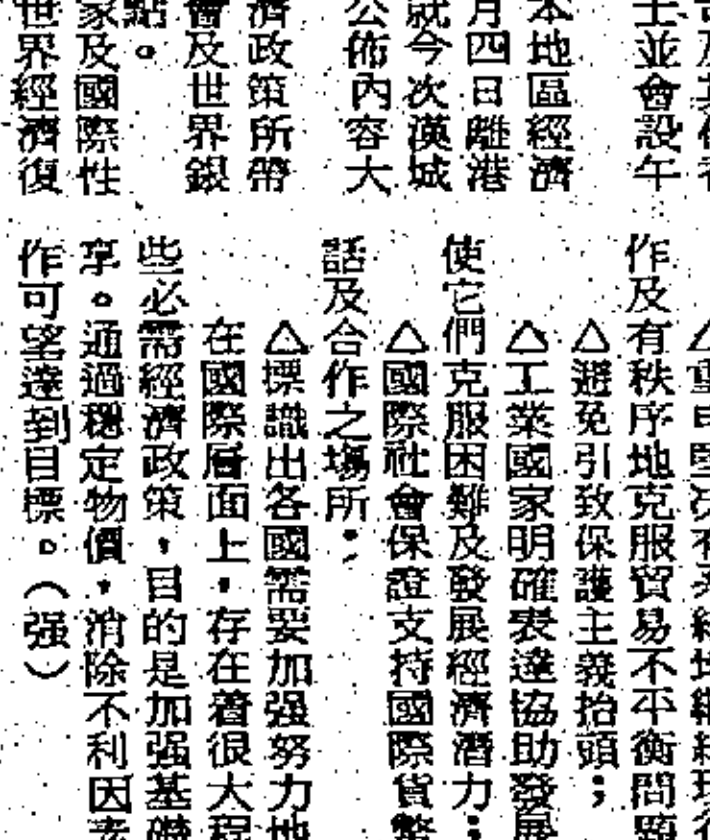 士並會設午
本地區經濟
月四日離港
就今次漢城
公佈內容大
濟政策所帶
會及世界銀
點。
家及國際性
世界經濟復
作及有秩序地克服貿易不平衡問題
△避免引致保護主義抬頭；
△工業國家明確表達協助發展
使它們克服困難及發展經濟潛力；
△國際社會保證支持國際貨幣
話及合作之場所；
△標識出各國需要加强努力地
在國際層面上，存在着很大程
些必需經濟政策，目的是加强基礎
享。通過穩定物價，消除不利因素
作可望達到目標。（强）